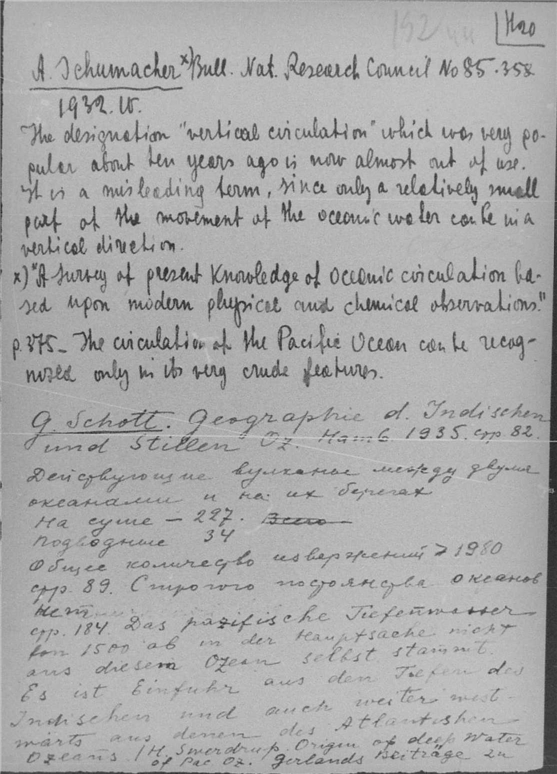 H20
A. Schumacher x) Bull. Nat. Research Council No 85. 358
1932. W.
The designation "vertical circulation" which was very po-
pular about ten years ago is now almost out of use.
It is a misleading term, since only a relatively small
part of the movement of the oceanic water can be in a
vertical direction.
x) "A Survey of present Knowledge of oceanic circulation ba-
sed upon modern physical and chemical observations."
p. 375 - The circulation of the Pacific Ocean can be recog-
nized only in its very crude features.
G. Schott. Geographie d. Indischen
und Stillen Oz. Hamb. 1935. стр. 82.
Действующие вулканов между двумя
океанами и на их берегах
На суше - 227. Всего
Подводные 34
Общее количество извержений > 1980
стр. 89. Строгого постоянства океанов
нет
стр. 184. Das pazifische Tiefenwasser
von 1500 ab in der Hauptsache nicht
aus diesem Ozean selbst stammt.
Es ist Einfuhr aus den Tiefen des
Indischen und auch weiter west-
wärts aus denen des Atlantishen
Ozeans. / H. Swerdrup. Origin of deep Water
of Pac. Oz. Gerlands Beiträge zu